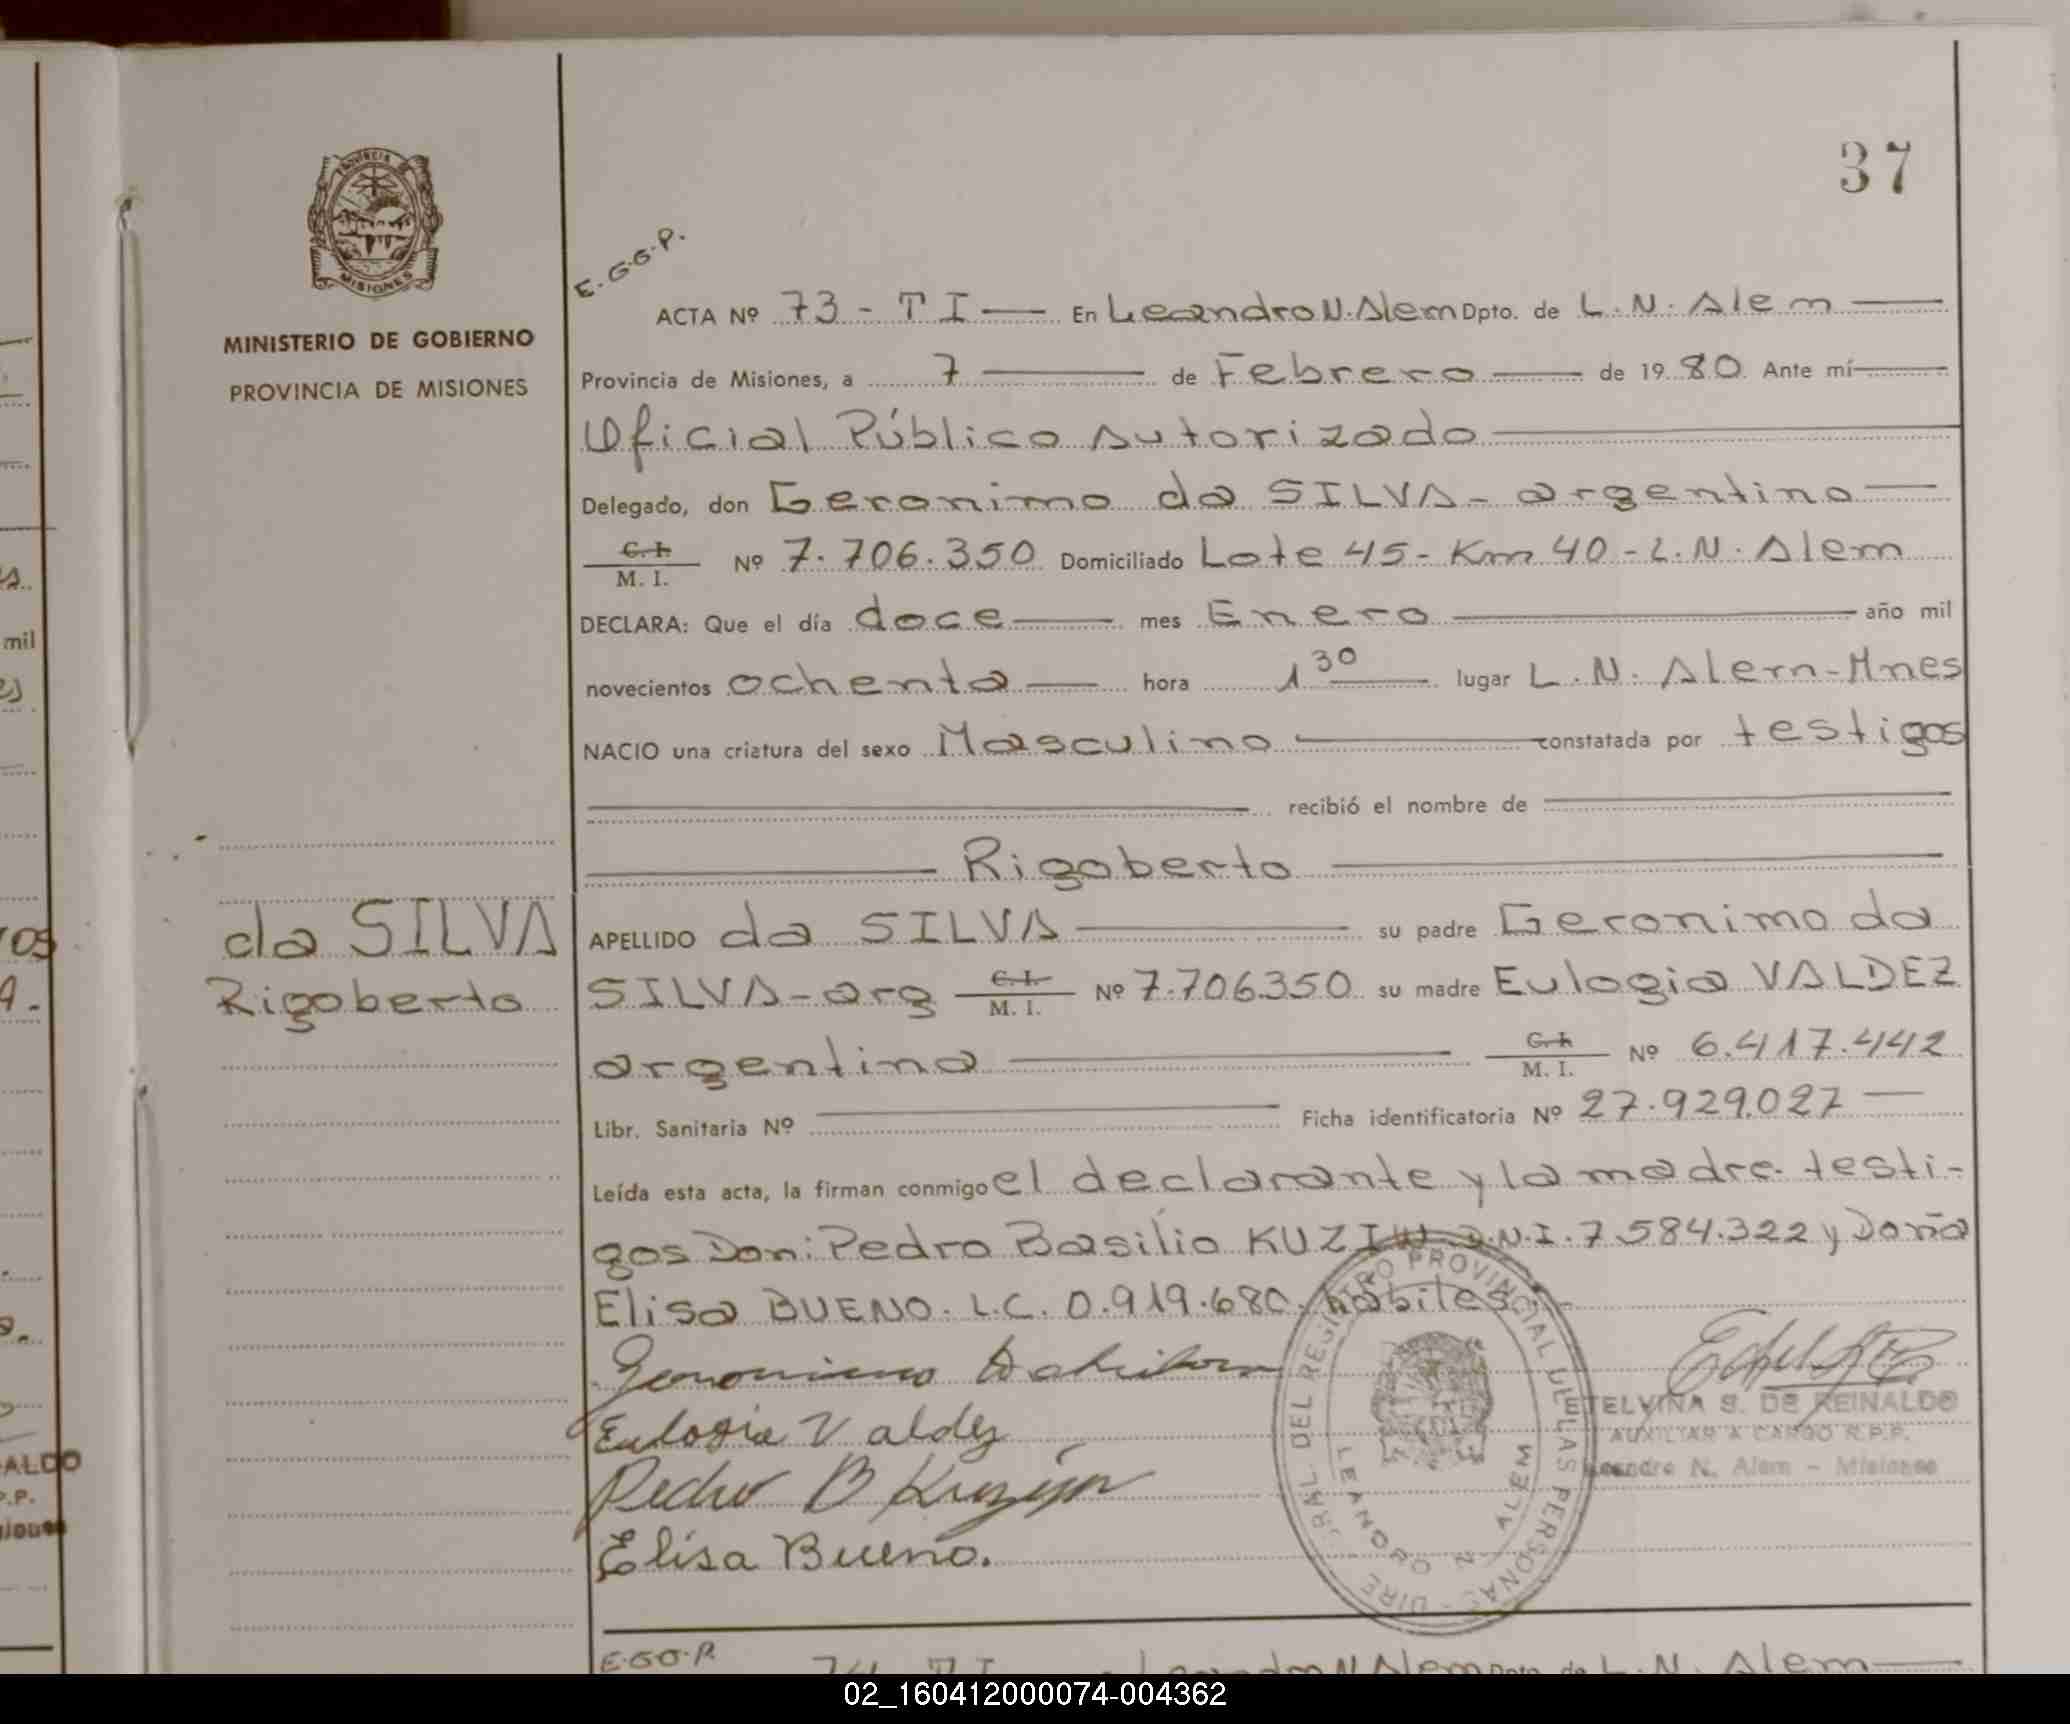 37
PROVINCIA DE
MISIONES
MINISTERIO DE GOBIERNO
PROVINCIA DE MISIONES
E.G.G.P.
ACTA Nº 73 - T I — En Leandro N. Alem Dpto. de L. N. Alem —
Provincia de Misiones, a 7 — de Febrero — de 19 80. Ante mí —
Oficial Público Autorizado —
Delegado, don Geronimo da SILVA - argentino —
C. I. / M. I. Nº 7.706.350 Domiciliado Lote 45 - Km 40 - L. N. Alem
DECLARA: Que el día doce — mes Enero — año mil
novecientos ochenta — hora 1 30 lugar L. N. Alem - Mnes
NACIO una criatura del sexo Masculino — constatada por testigos
— recibió el nombre de —
— Rigoberto —
da SILVA
Rigoberto
APELLIDO da SILVA — su padre Geronimo da
SILVA - arg C. I. / M. I. Nº 7.706350 su madre Eulogia VALDEZ
argentina — C. I. / M. I. Nº 6.417.442
Libr. Sanitaria Nº — Ficha identificatoria Nº 27.929.027 —
Leída esta acta, la firman conmigo el declarante y la madre. testi-
gos Don: Pedro Basilio D.N.I. 7.584.322 y Doña
Elisa BUENO. L.C. 0.919.680. hábiles. -
Geronimo
Eulogia Valdez
Pedro B
Elisa Bueno.
DEL REGISTRO PROVINCIAL DE LAS PERSONAS - DIRE GRAL.
LEANDRO N. ALEM
ETELVINA S. DE REINALDO
AUXILIAR A CARGO R.P.P.
Leandro N. Alem - Misiones
E.GG.P.
74 - T I Leandro N Alem Dpto. de L. N. Alem —
mil
ALDO
P.P.
02_160412000074-004362